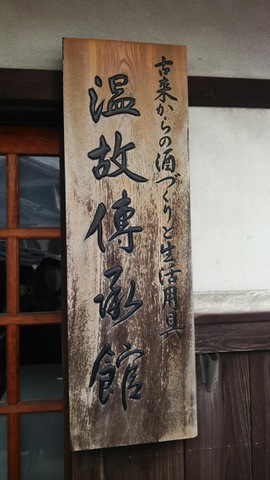 古来からの酒づくりと生活用具
温故傳承館